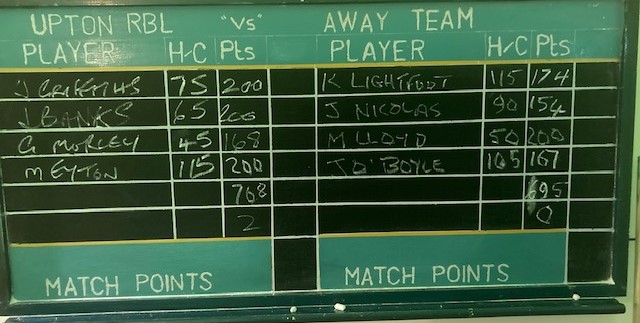 UPTON RBL "VS" AWAY TEAM
PLAYER H/C Pts PLAYER H/C Pts
J GRIFFITHS 75 200 K LIGHTFOOT 115 174
J BANKS 65 200 J NICOLAS 90 154
G MORLEY 45 168 M LLOYD 50 200
M EYTON 115 200 J O'BOYLE 105 167
768 695
2 0
MATCH POINTS MATCH POINTS